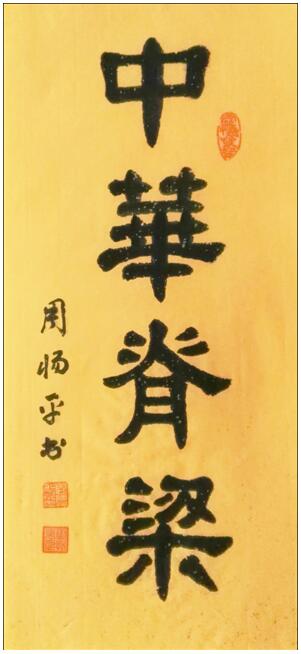 中華脊梁
周杨平书